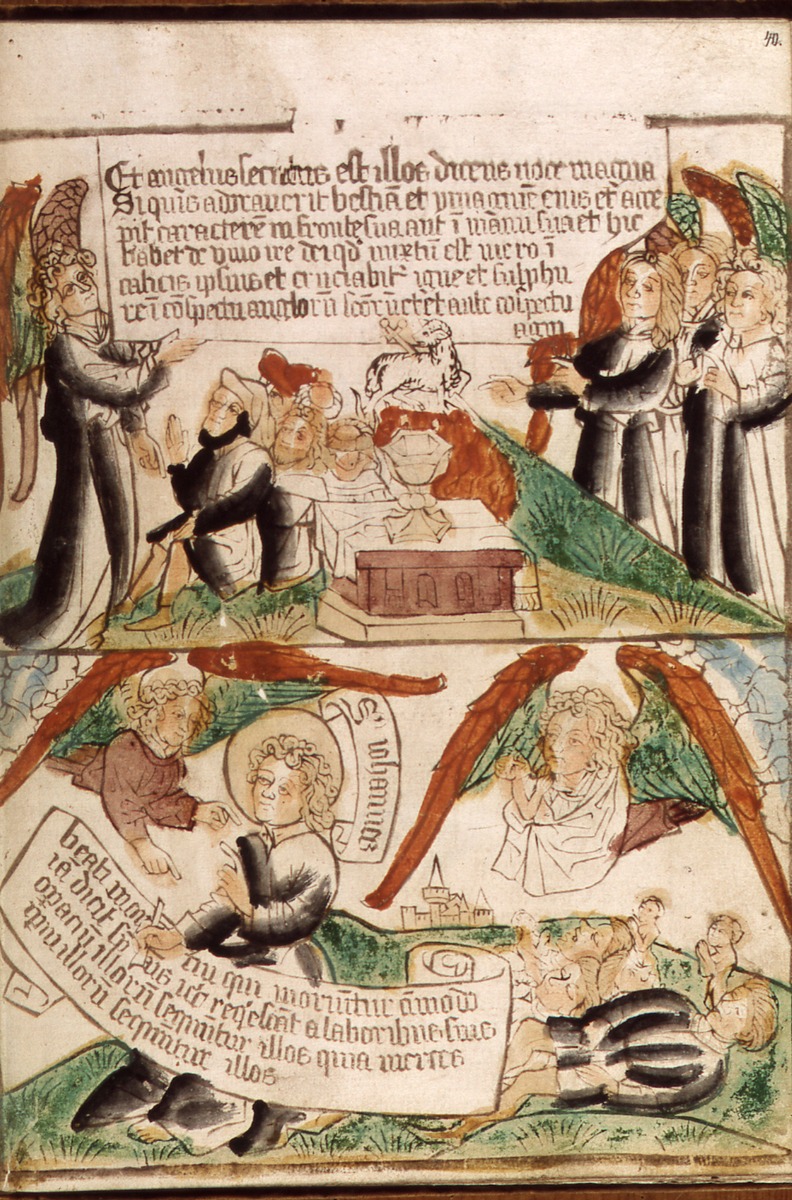 Et angelus secutus est illos dicens uoce magna
Si quis adorauerit bestiā et ymaginē eius et acce
pit caracterē in fronte sua aut ī manu sua et hic
habet de vino ire dei qd mixtū est mero ī
calicis ipsius et cruciabit' igne et sulphu
re ī cōspectu anglorū scōrū et ante cōspectu
agni
S' iohannes
beati mortui qui moriūtur āmodo
ia dicit spūs ut reqescāt a laboribus suis
opa enī illorū sequūtur illos quia merces
illorū sequūtur illos